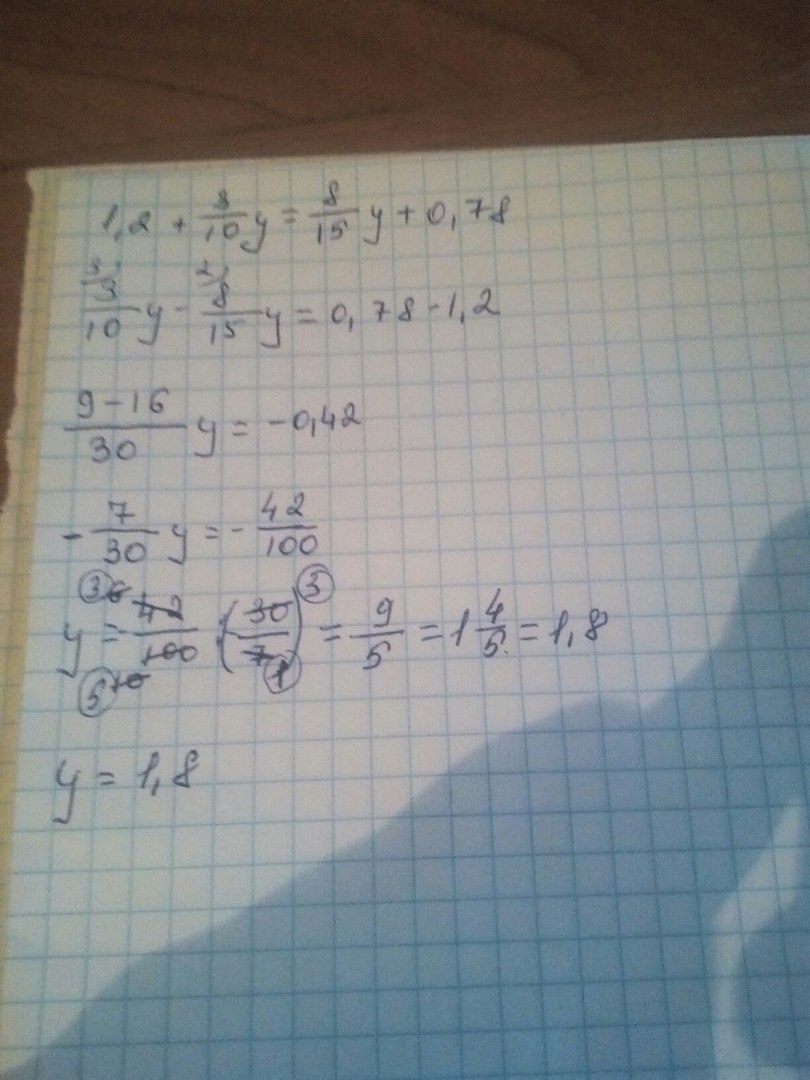 1,2 + 3/10 y = 8/15 y + 0,78
3) 3/10 y - 2) 8/15 y = 0,78 - 1,2
9-16/30 y = -0,42
- 7/30 y = - 42/100
y = 42/100 · (30/7) = 9/5 = 1 4/5 = 1,8
y = 1,8